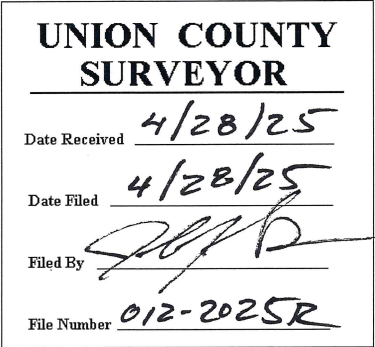 UNION COUNTY
SURVEYOR
Date Received 4/28/25
Date Filed 4/28/25
Filed By
File Number 012-2025R